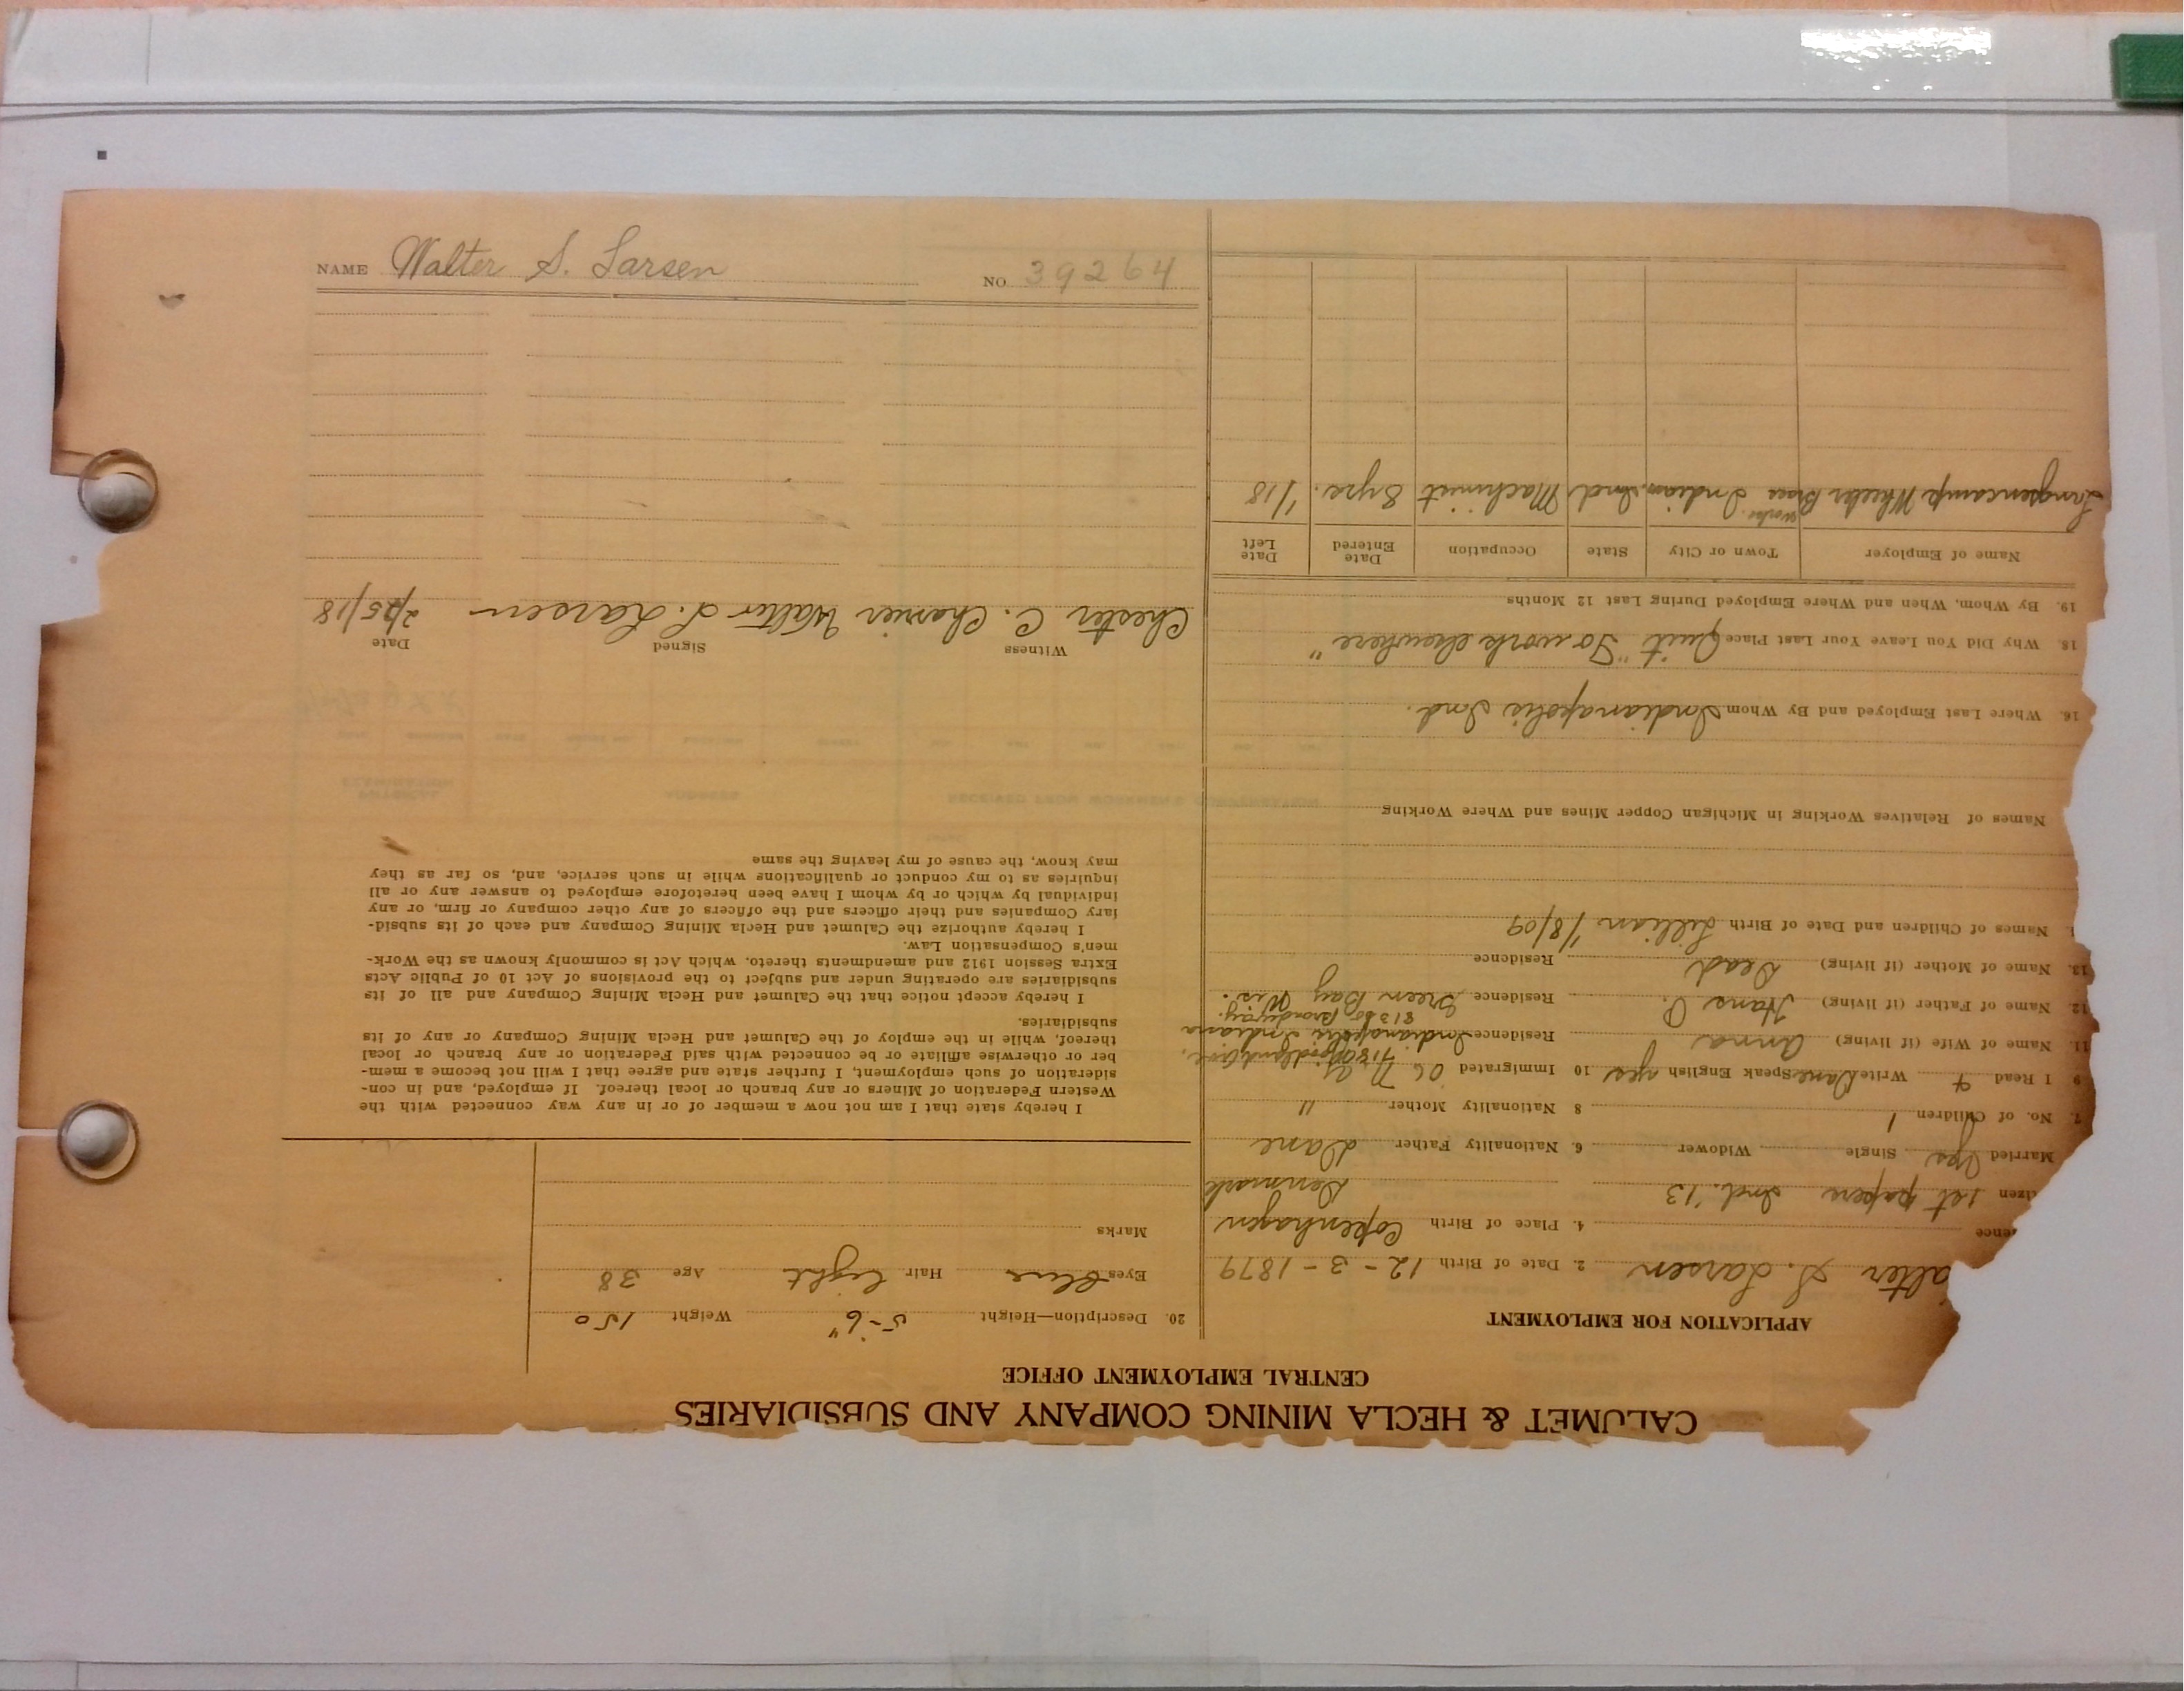 NAME Walter S. Larsen NO. 39264
CALUMET & HECLA MINING COMPANY AND SUBSIDIARIES
CENTRAL EMPLOYMENT OFFICE
APPLICATION FOR EMPLOYMENT
alter S. Larsen 2. Date of Birth 12-3-1879
ence 4. Place of Birth Copenhagen
izen 1st papers Ind. '13 Denmark
Married Yes Single Widower 6. Nationality Father Dane
7. No. of Children 1 8 Nationality Mother "
9 I Read 4 Write Dane Speak English yes 10 Immigrated 06 N.Y.
11. Name of Wife (if living) Anna Residence Indianapolis Indiana
813 So Broadway.
12. Name of Father (if living) Hans P. Residence Green Bay Wis.
13. Name of Mother (if living) Dead Residence
Names of Children and Date of Birth Lillian 1/8/09
Names of Relatives Working in Michigan Copper Mines and Where Working
16. Where Last Employed and By Whom Indianapolis Ind.
18. Why Did You Leave Your Last Place Quit "To work elsewhere"
19. By Whom, When and Where Employed During Last 12 Months
Name of Employer Town or City State Occupation Date Entered Date Left
Langsencamp Wheeler Brass works. Indian. Ind Machinist 8 yrs. 1/18
20. Description—Height 5-6" Weight 150
Eyes Blue Hair light Age 38
Marks
I hereby state that I am not now a member of or in any way connected with the
Western Federation of Miners or any branch or local thereof. If employed, and in con-
sideration of such employment, I further state and agree that I will not become a mem-
ber or otherwise affiliate or be connected with said Federation or any branch or local
thereof, while in the employ of the Calumet and Hecla Mining Company or any of its
subsidiaries.
I hereby accept notice that the Calumet and Hecla Mining Company and all of its
subsidiaries are operating under and subject to the provisions of Act 10 of Public Acts
Extra Session 1912 and amendments thereto, which Act is commonly known as the Work-
men's Compensation Law.
I hereby authorize the Calumet and Hecla Mining Company and each of its subsid-
iary Companies and their officers and the officers of any other company or firm, or any
individual by which or by whom I have been heretofore employed to answer any or all
inquiries as to my conduct or qualifications while in such service, and, so far as they
may know, the cause of my leaving the same
Witness Signed Date
Chester C. Charrier Walter S. Larsen 2/25/18